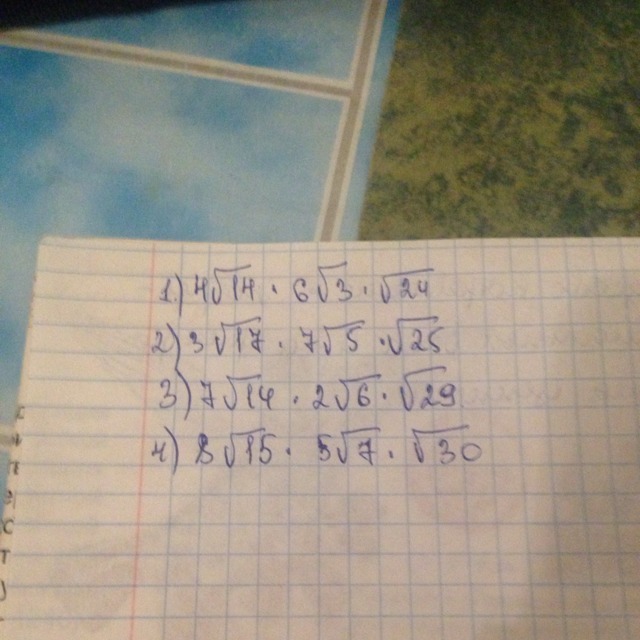 1) 4√14 · 6√3 · √24
2) 3√17 · 7√5 · √25
3) 7√14 · 2√6 · √29
4) 8√15 · 5√7 · √30